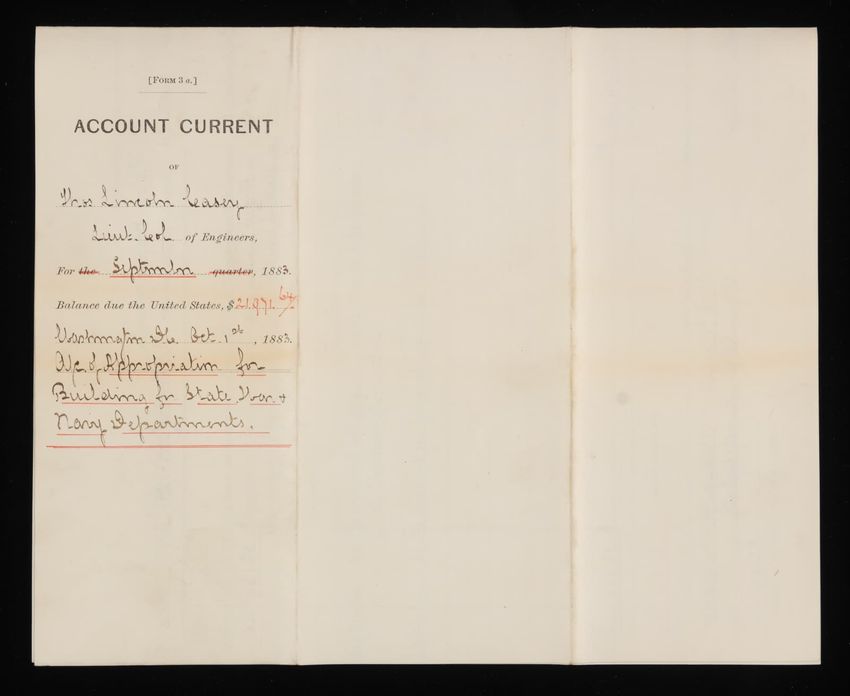 [FORM 3 a.]
ACCOUNT CURRENT
OF
Thos Lincoln Casey
Lieut. Col. of Engineers,
For the September quarter, 1883.
Balance due the United States, $21.971.64
Washington D.C. Oct. 1st, 1883.
A/c. of Appropriation for
Building for State, War &
Navy Departments.